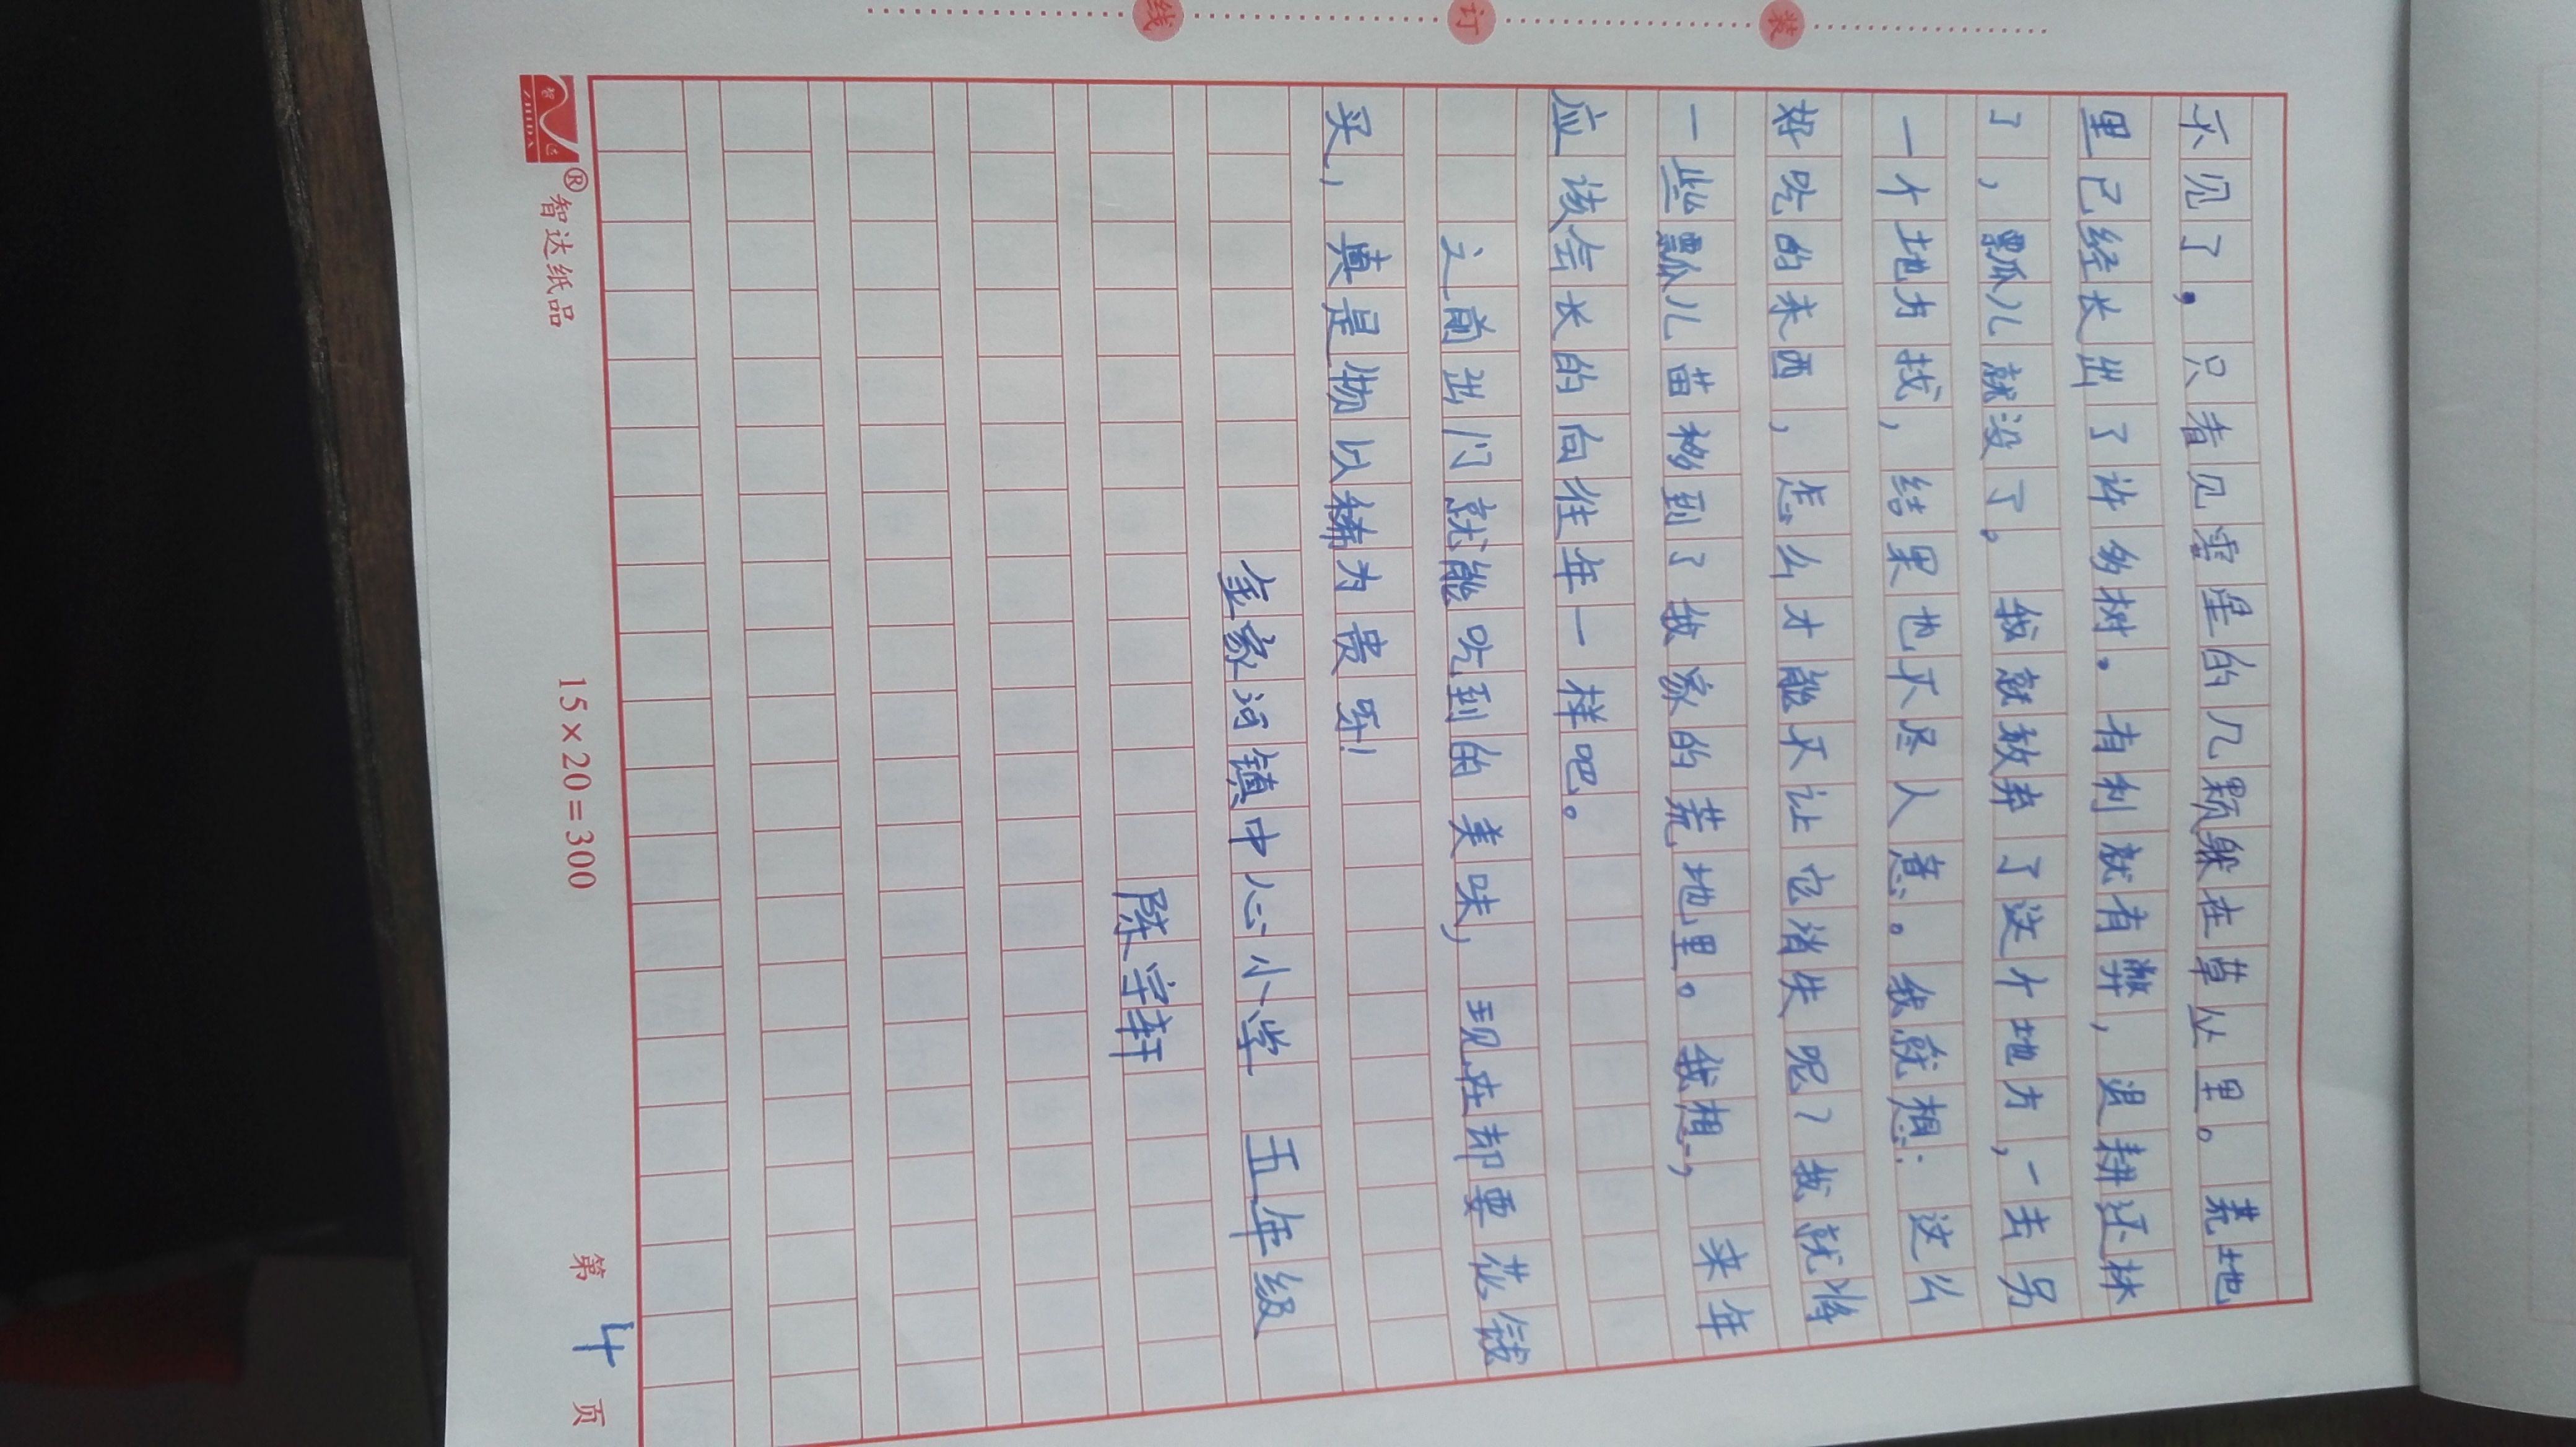 装 订 线
不见了，只看见零星的几颗躲在草丛里。荒地
里已经长出了许多树。有利就有弊，退耕还林
了，瓢儿就没了。我就放弃了这个地方，一去另
一个地方找，结果也不尽人意。我就想：这么
好吃的东西，怎么才能不让它消失呢？我就将
一些瓢儿苗移到了我家的荒地里。我想，来年
应该会长的向往年一样吧。
之前出门就能吃到的美味，现在却要花钱
买，真是物以稀为贵呀！
金家河镇中心小学 五年级
陈宇轩
智达
ZHIDA
®智达纸品 15×20=300 第 4 页